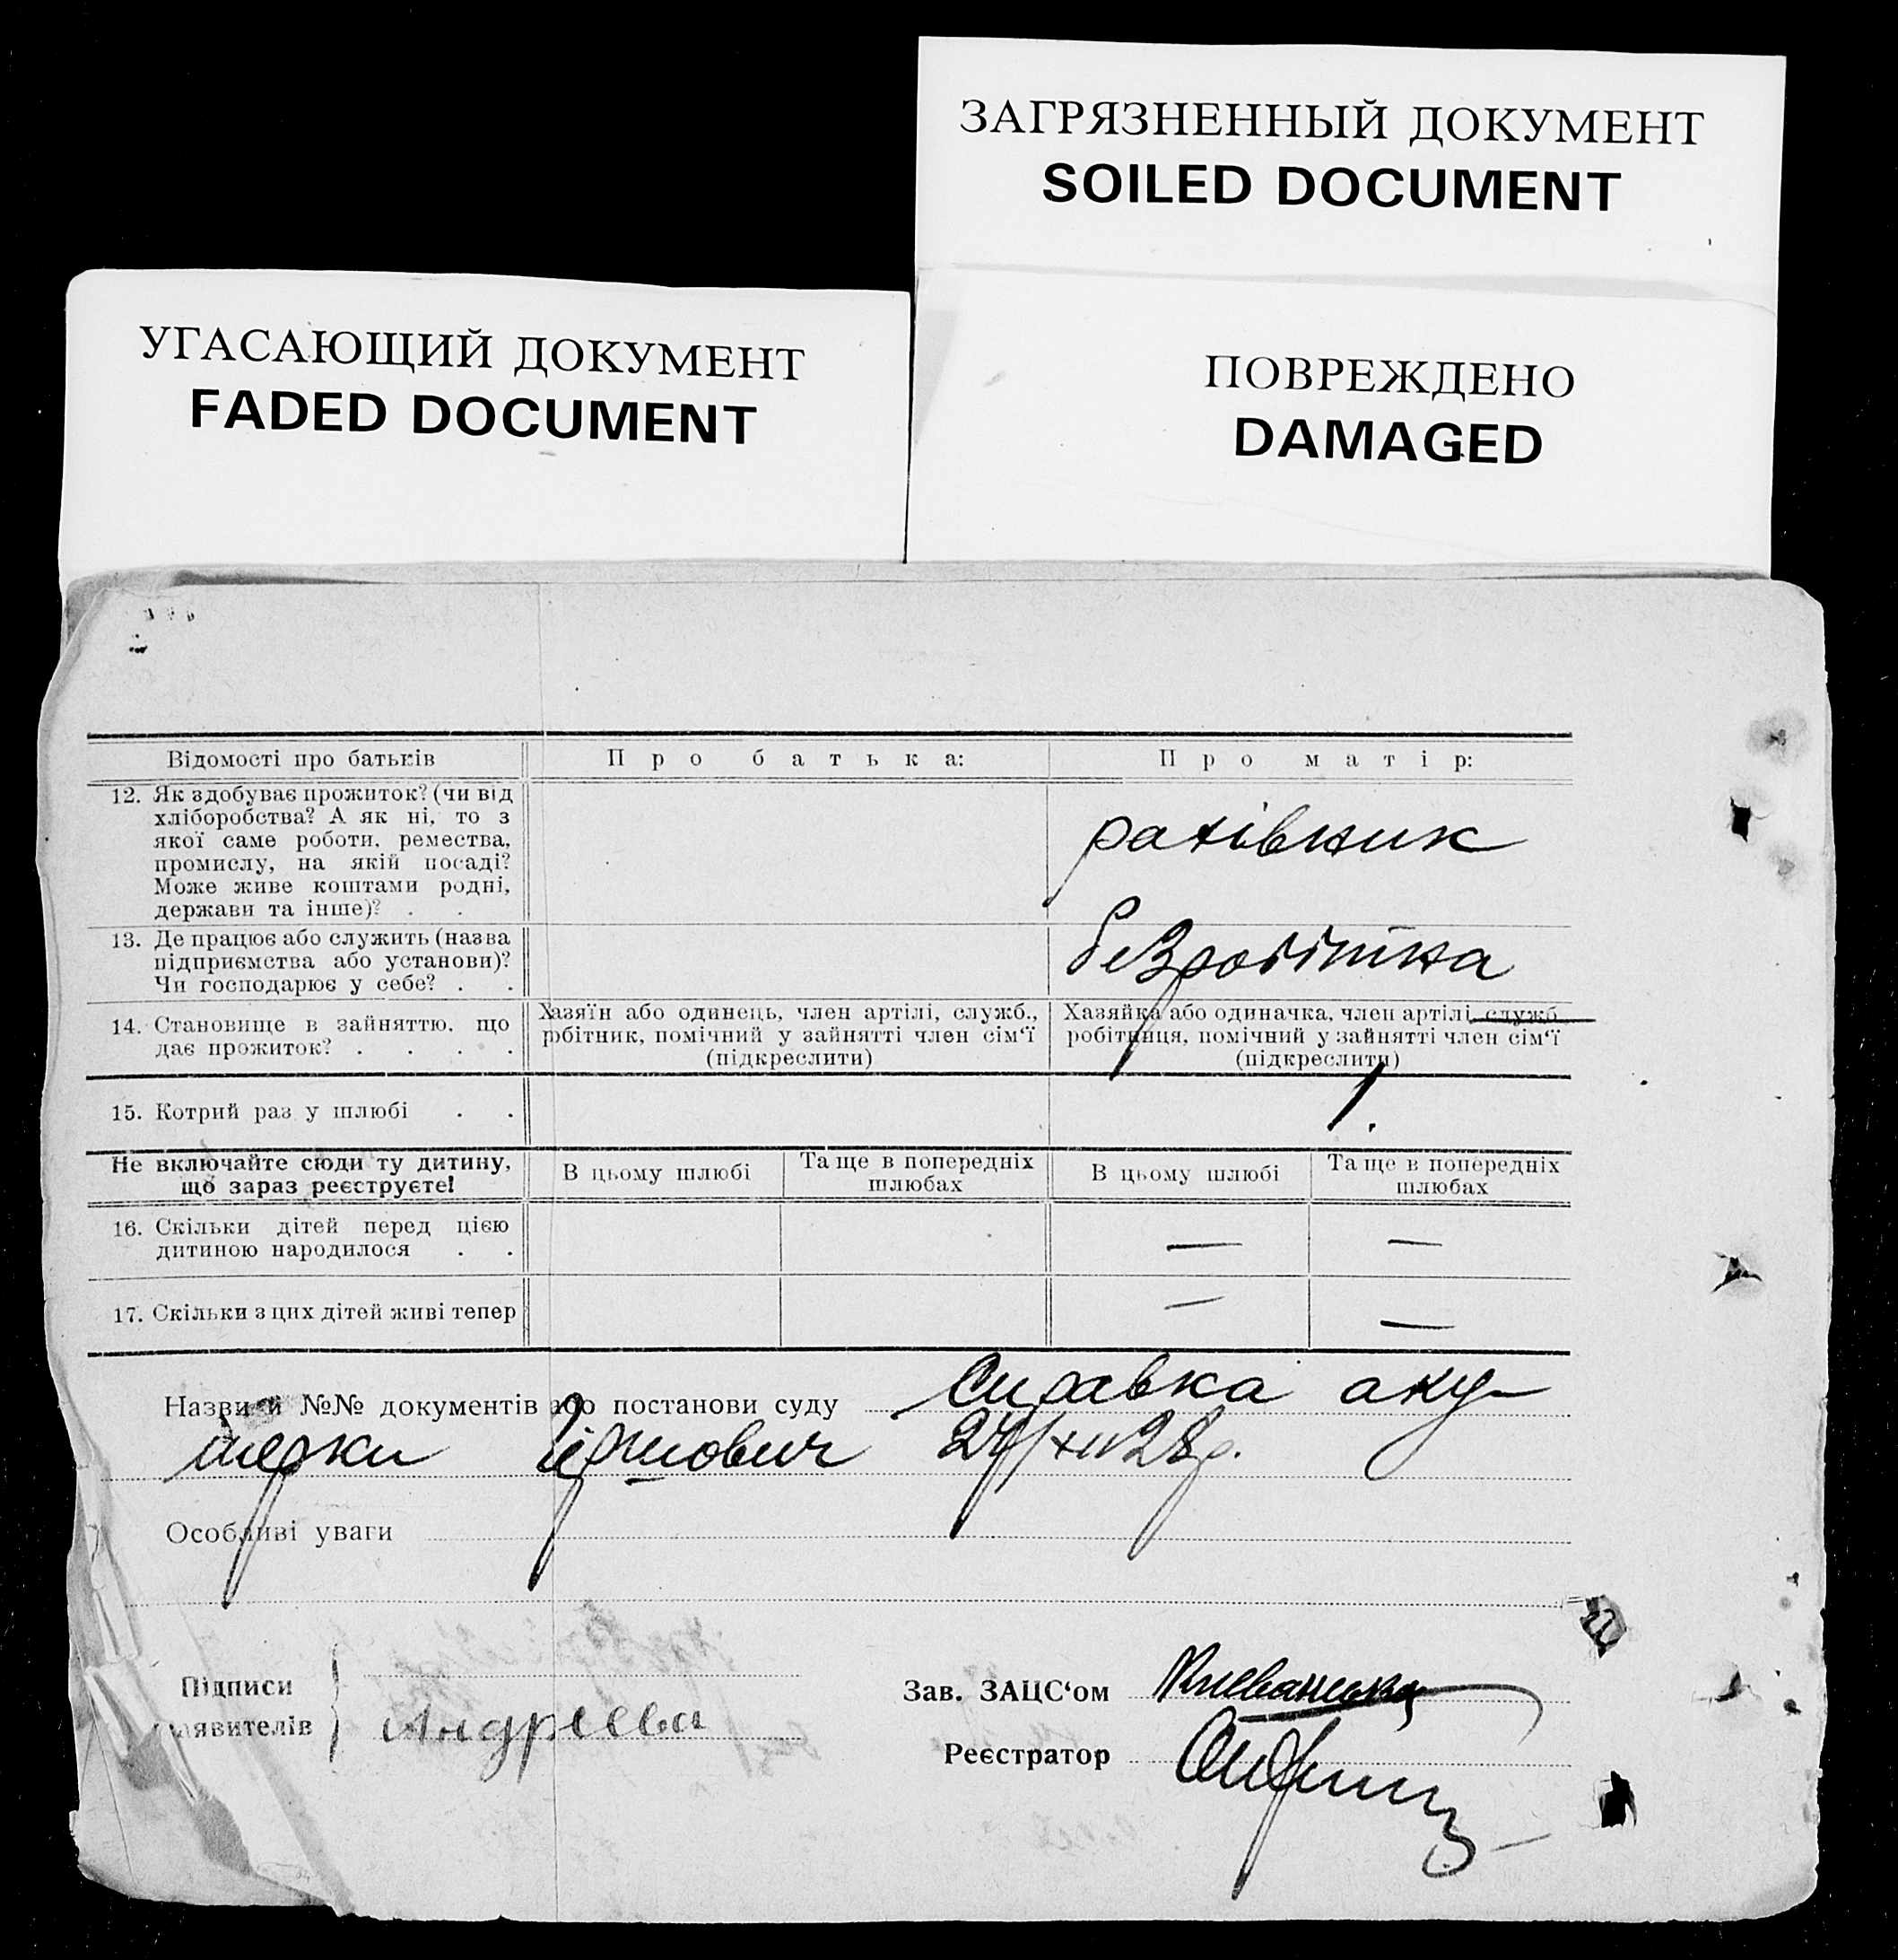 ЗАГРЯЗНЕННЫЙ ДОКУМЕНТ
SOILED DOCUMENT
УГАСАЮЩИЙ ДОКУМЕНТ
FADED DOCUMENT
ПОВРЕЖДЕНО
DAMAGED
Відомості про батьків
Про батька:
Про матір:
12. Як здобуває прожиток? (чи від
хліборобства? А як ні, то з
якої саме роботи, ремества,
промислу, на якій посаді?
Може живе коштами родні,
держави та інше)? . .
рахівник
13. Де працює або служить (назва
підприємства або установи)?
Чи господарює у себе? . .
безробітна
14. Становище в зайняттю, що
дає прожиток? . . . .
Хазяїн або одинець, член артілі, служб.,
робітник, помічний у зайнятті член сім‘ї
(підкреслити)
Хазяйка або одиначка, член артілі, служб.
робітниця, помічний у зайнятті член сім‘ї
(підкреслити)
15. Котрий раз у шлюбі . .
1.
Не включайте сюди ту дитину,
що зараз реєструєте!
В цьому шлюбі
Та ще в попередніх
шлюбах
В цьому шлюбі
Та ще в попередніх
шлюбах
16. Скільки дітей перед цією
дитиною народилося . .
— —
17. Скільки з цих дітей живі тепер
— —
Назви й №№ документів або постанови суду Справка аку-
шерки 28р.
Особливі уваги
Підписи
заявителів
Андреева
Зав. ЗАЦС‘ом
Реєстратор